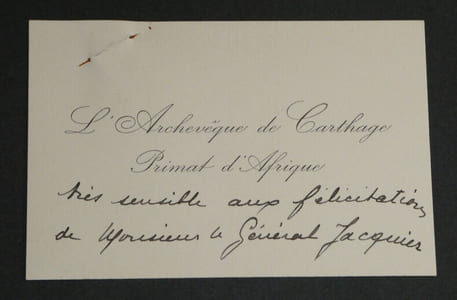 L'Archevêque de Carthage
Primat d'Afrique
très sensible aux félicitations
de Monsieur le Général Jacquier